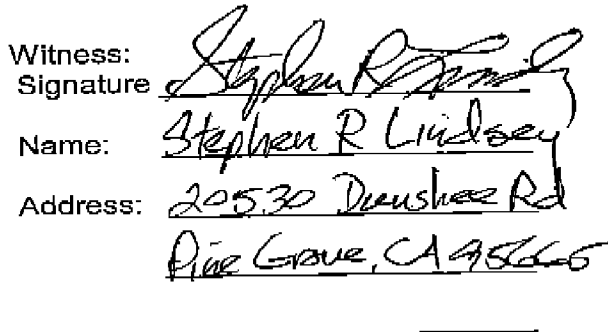 Witness:
Signature Stephen R
Name: Stephen R Lindsey
Address: 20530 Rd
Pine Grove, CA 95665